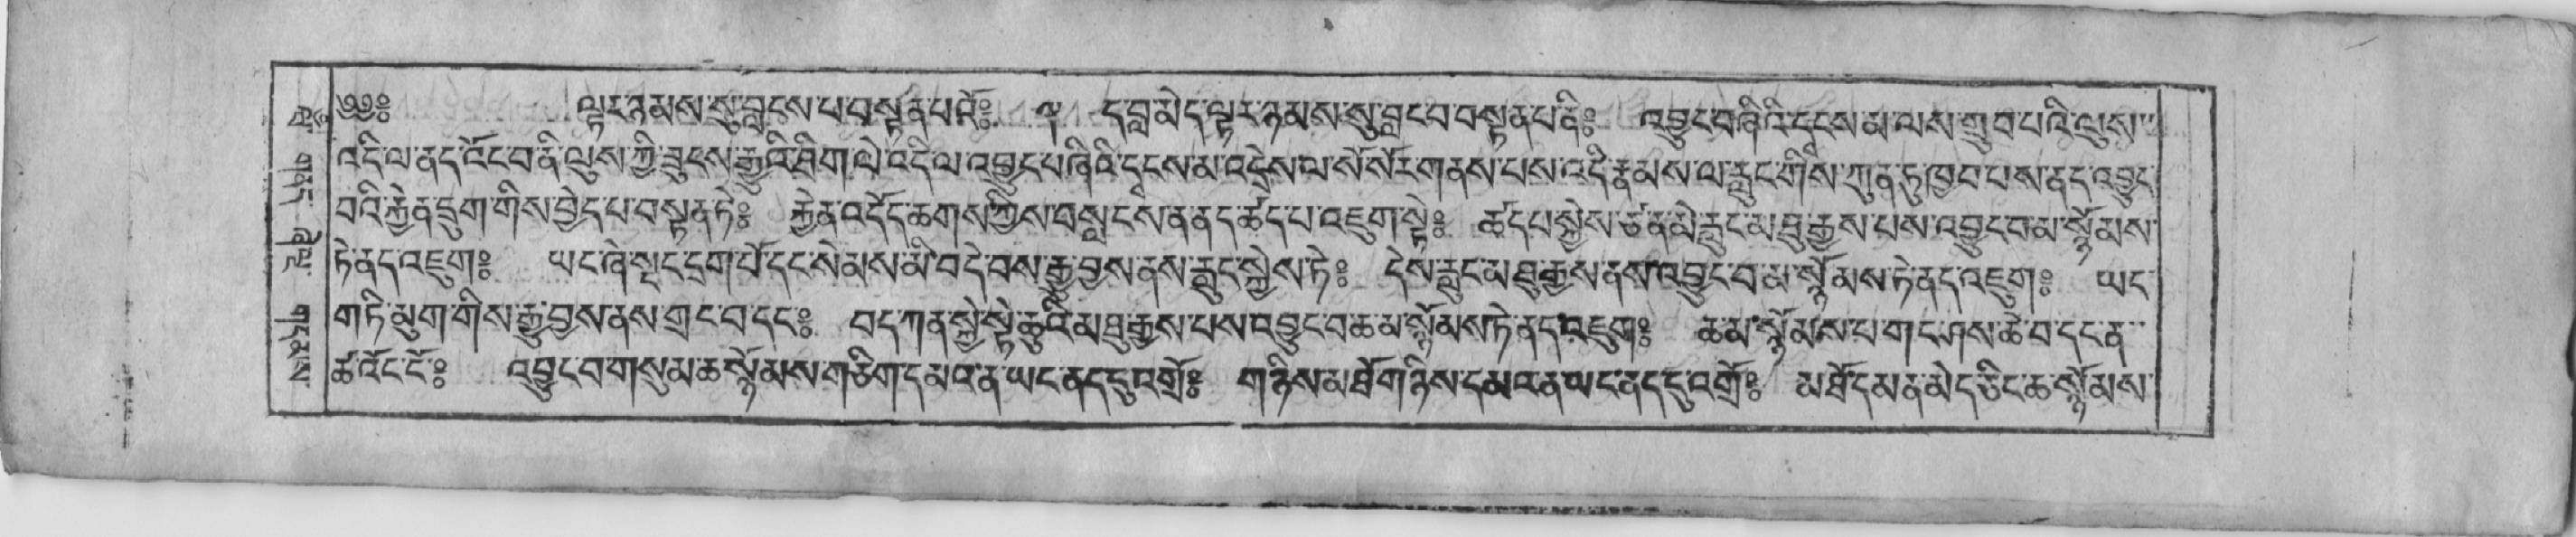 ༄༅༔ ལྟར་ཉམས་སུ་བླངས་པ་བསྟན་པའོ༔ ད་བླ་མེད་ལྟར་ཉམས་སུ་བླང་བ་བསྟན་པ་ནི༔ འབྱུང་བ་ཞིའི་དྭངས་མ་ལས་གྲུབ་པའི་ལུས་
འདི་ལ་ནད་འོང་བ་ནི་ལུས་ཀྱི་ཟུངས་རྒྱུའི་ཐིག་ལེ་འདི་ལ་འབྱུང་པ་ཞིའི་དྭངས་མ་འདྲེས་ལ་སོ་སོར་གནས་པས་འདི་རྣམས་ལ་རླུང་གིས་ཀུན་ཏུ་ཁྱབ་པས་ནད་འབྱུང་
བའི་རྐྱེན་དྲུག་གིས་བྱེད་པ་བསྟན་ཏེ༔ རྐྱེན་འདོད་ཆགས་ཀྱིས་བསླངས་ན་ནད་ཚད་པ་འཇུག་སྟེ༔ ཚད་པ་སྐྱེས་ཙ་ན་མེ་རླུང་མ་བྲུ་རྒྱས་པས་འབྱུང་བ་མ་སྙོམས་
ཏེ་ནད་འཇུག༔ ཡང་ཞེ་སྡང་དྲག་པོ་དང་སེམས་མི་བདེ་བས་རྒྱུ་བྱས་ནས་རླུང་སྐྱེས་ཏེ༔ དེས་རླུང་མ་བྲུ་རྒྱས་ནས་འབྱུང་བ་མ་སྙོམས་ཏེ་ནད་འཇུག༔ ཡང་
གཏི་མུག་གིས་རྒྱུ་བྱས་ནས་གྲང་བ་དང༔ བད་ཀན་སྐྱེ་སྟེ་ཆུའི་མ་བྲུ་རྒྱས་པས་འབྱུང་བ་ཆ་མ་སྙོམས་ཏེ་ནད་འཇུག༔ ཆ་མ་སྙོམས་པ་གང་ཤས་ཆེ་བ་དང་ན་
ཚ་འོང་ངོ༔ འབྱུང་བ་གསུམ་ཆ་སྙོམས་གཅིག་དམའ་ན་ཡང་ནད་དུ་འགྲོ༔ གཉིས་མཐོ་གཉིས་དམའ་ན་ཡང་ནད་དུ་འགྲོ༔ མཐོ་དམན་མེད་ཅིང་ཆ་སྙོམས་